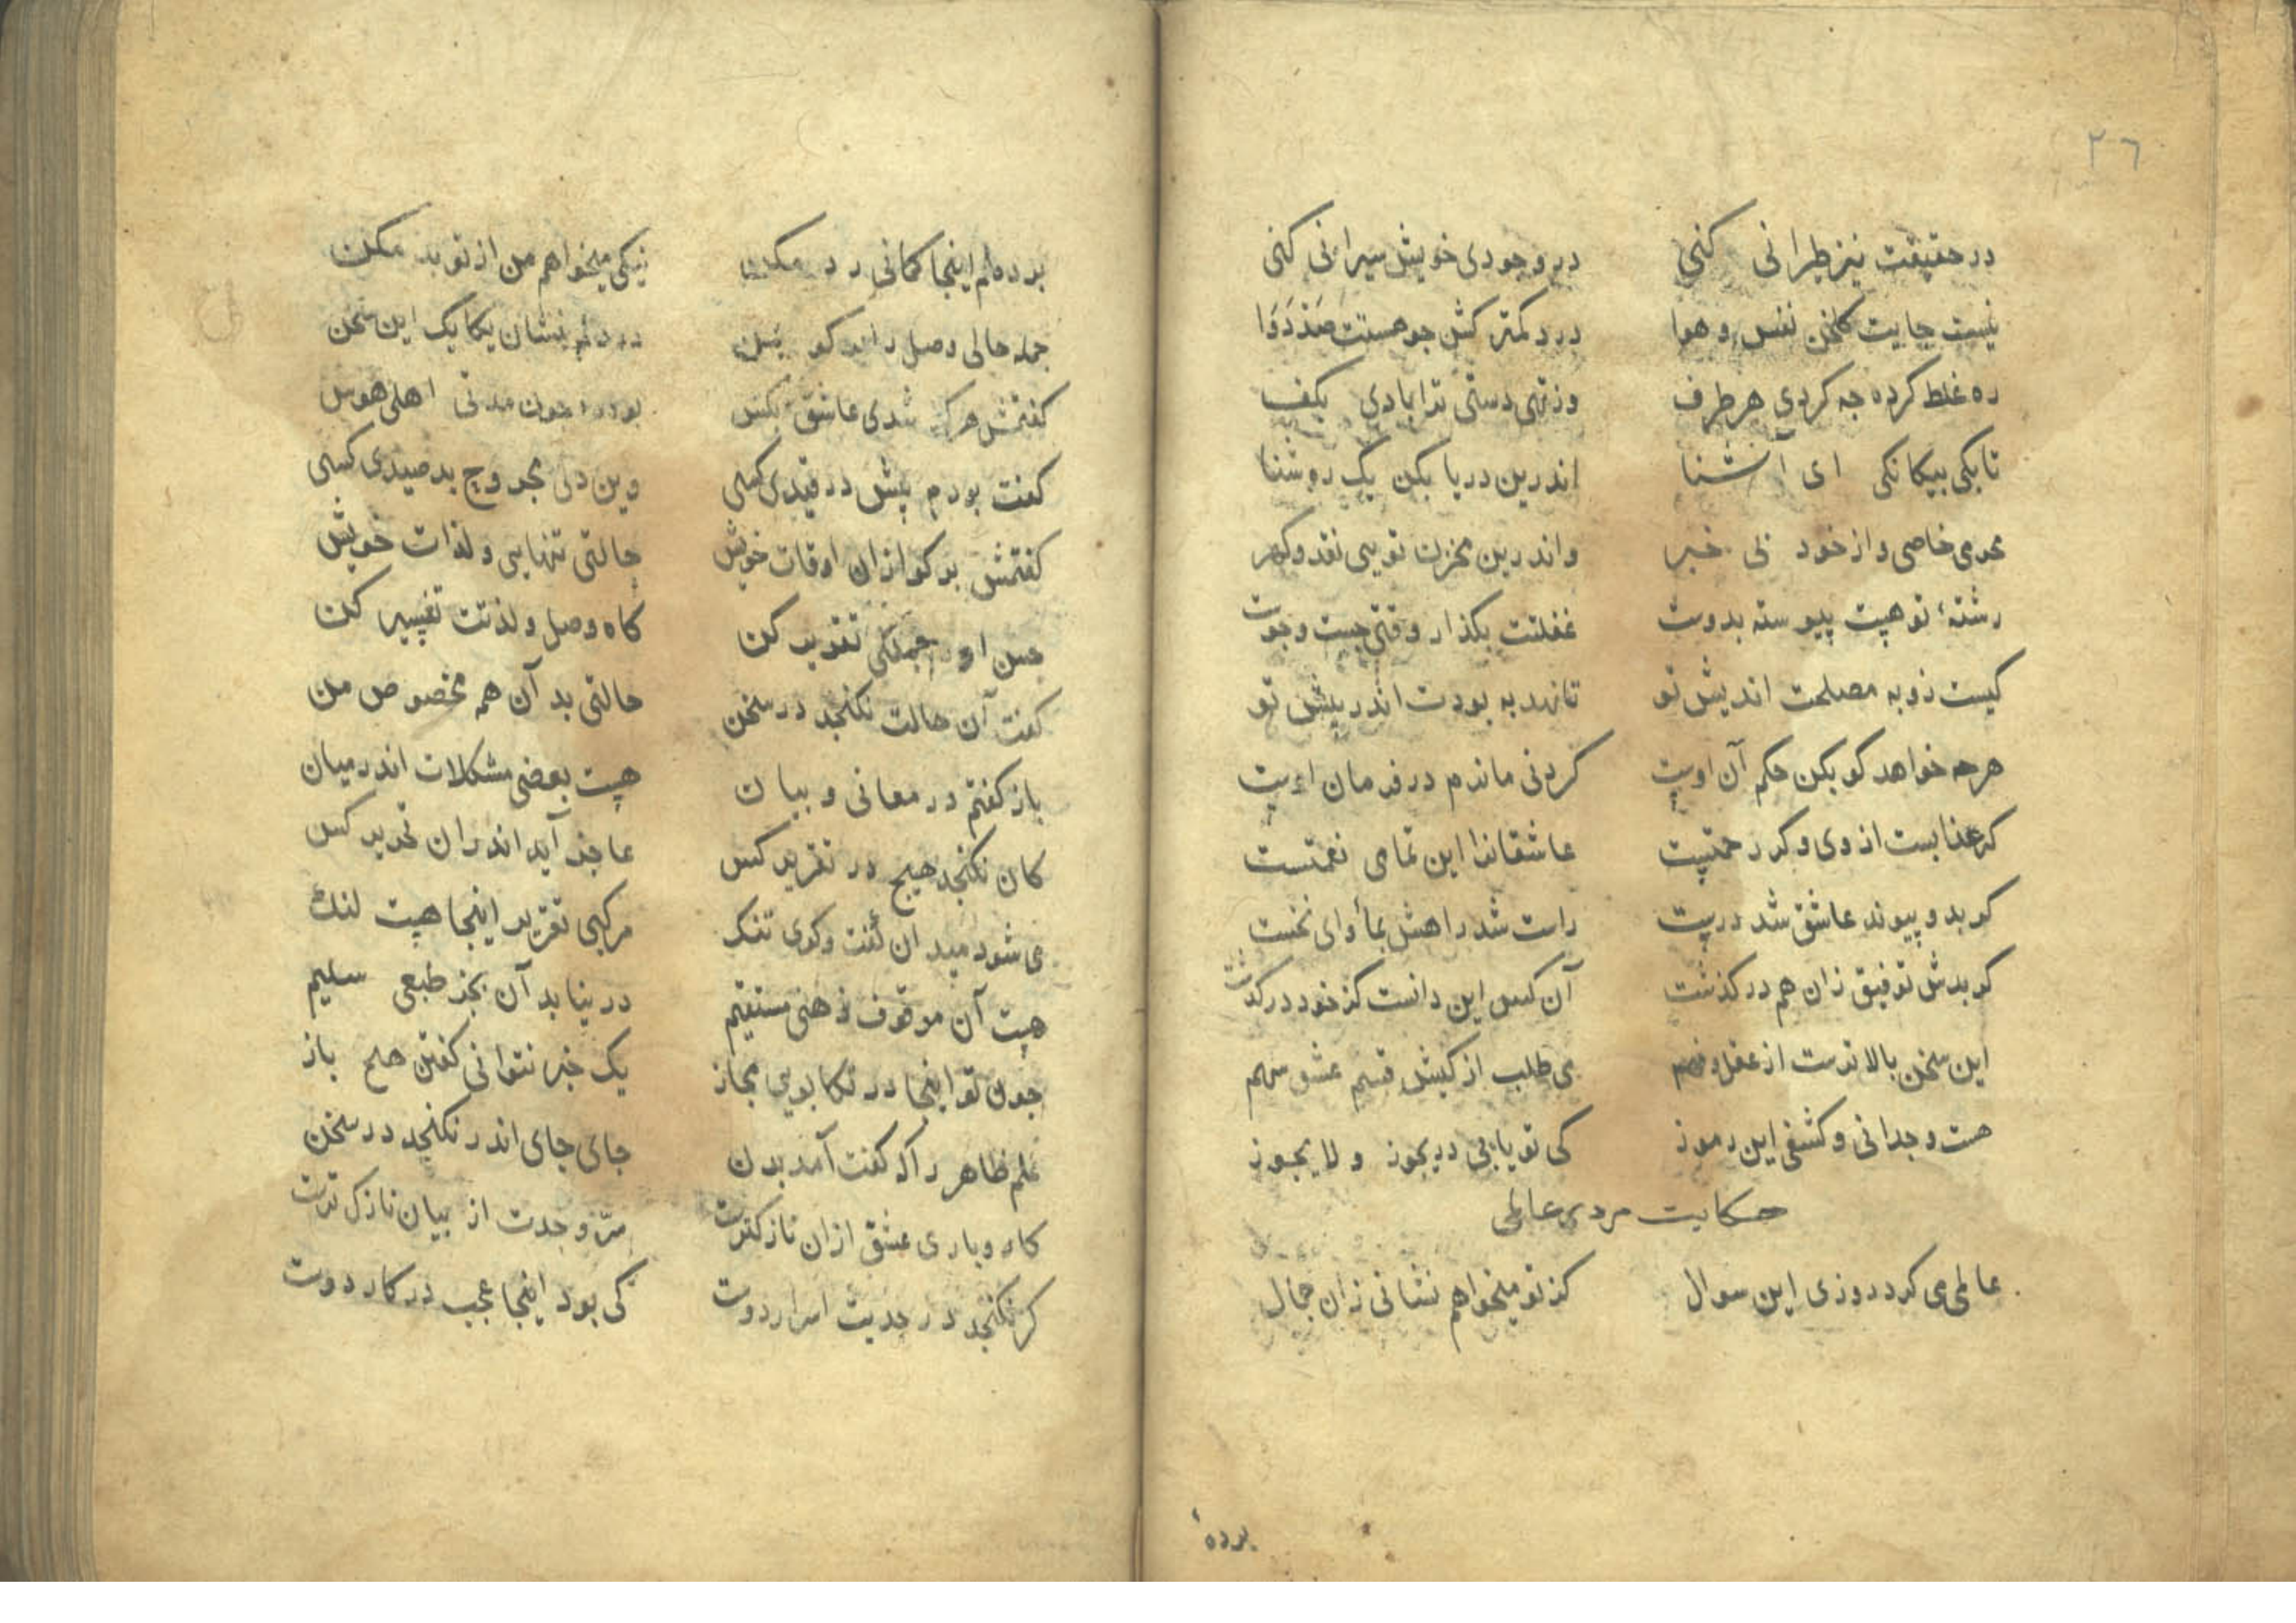 ٢٦
در حقیقت نیز طیرانی کنی در وجودی خویش سیرانی کنی
نیست جایت کلخن نفس و هوا درد کمتر کش جو هستت صد دوا
ره غلط کرده جه کردی هر طرف وز تهی دستی ترا بادی بکف
تا بکی بیکانکی ای آشنا اندرین دریا بکن یک روشنا
محرمی خاصی و از خود بی خبر واندرین مخزن تویی نقد و کهر
رشتهٔ تو هست پیوسته بدوست غفلتت بکذار وقتی جست و جوست
کیست زو به مصلحت اندیش تو تا نهد به بودت اندر پیش تو
هرجه خواهد کو بکن حکم آن اوست کردنی ماندم در فرمان اوست
کر عذابست از وی و کر رحمتست عاشقانرا این تمامی نعمتست
کو بد و پیوند عاشق شد درست راست شد راهش بمأوای نخست
کو بدش توفیق زان هم در کذشت آن کس این دانست کز خود در کذشت
این سخن بالاترست از عقل و فهم می طلب از کیش قسم عشق سهم
هست وجدانی و کشفی این رموز کی تو یابی در یجوز و لا یجوز
حکایت مردی عالمی
عالمی می کرد روزی این سوال کز تو میخواهم نشانی زان جمال
بردهٔ
برده‌ام اینجا کمانی رد مکن نیکی میخواهم من از تو بد مکن
جمله حالی وصل را کو یکایک این سخن
کفتمش هرکه شدی عاشق بکس بود جون مدتی اهلی هوس
کفت بودم پیش در قیدی کسی وین دلی مجروح بد صیدی کسی
کفتمش بر کو ازان اوقات خویش حالتی تنهایی و لذات خویش
حسن او را جملکی تقریر کن کاه وصل و لذتت تفسیر کن
کفت آن حالت نکنجد در سخن حالتی بد آن همه مخصوص من
باز کفتم در معانی و بیان هست بعضی مشکلات اندر میان
کان نکنجد هیج در تقریر کس عاجز آید اندران تحریر کس
می شود میدان کفت وکوی تنک مرکبی تقریر اینجا هست لنک
هست آن موقوف ذهنی مستقیم در نیابد آن بجز طبعی سلیم
جون تو اینجا در تکابویی مجاز یک خبر نتوانی کفتن هیح باز
علم ظاهر را که کفت آمد بدن جای جای اندر نکنجد در سخن
کار و باری عشق ازان نازکترست سرّ وحدت از بیان نازک ترست
کر نکنجد در حدیث اسرار دوست کی بود اینجا عجب در کار دوست